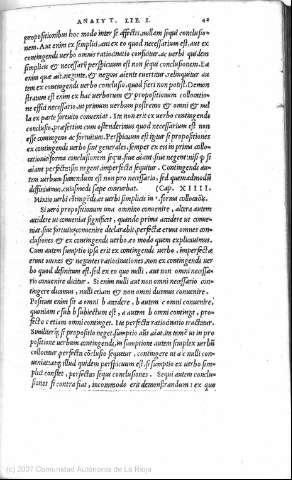 ANALYT. LIB. I. 42
propositionibus hoc modo inter se affectis, nullam sequi conclusio-
nem. Aut enim ex simplici, aut ex eo quod necessarium est, aut ex
contingendi verbo omnis ratiocinatio conficitur. ac verbū quidem
simplicis & necessarij perspicuum est non sequi conclusionem. Ea
enim quæ ait, negante, & negans aiente evertitur. relinquitur au
tem ex contingendi verbo conclusio, quod fieri non potest. Demon
stratum est enim ex hac verborum & propositionum
ne effici necessario, ut primum verbum postremo & omni & nul
lo ex parte fortuito conveniat. Ita non erit ex verbo contingendi
conclusio. præsertim cum ostenderimus quod necessarium est non
esse contingens ac fortuitum. Perspicuum est igitur si propositiones
ex contingendi verbo sint generales, semper ex eis in prima collo-
rationis forma conclusionem sequi, sive aiant sive negent: nisi quod si
aiant perfectus, sin negent imperfectus sequitur. Contingendi au-
tem verbum sumendum est non pro necessario, sed quemadmodum
diffinivimus, cuiusmodi sæpe conturbat. (Cap. XIIII.
Mixtio verbi et verbi simplicis in I. forma
Si verò propositionum una omnino convenire, altera autem
accidere ut conveniat significet, quando prima accidere ut conve-
niat, sive fortuito convenire declarabit, perfectæ erunt omnes con-
clusiones & ex contingendi verbo, eo modo quem explicavimus.
Cum autem sumptio ipsa erit ex contingendi verbo, imperfectæ
erunt omnes & negantes ratiocinationes, non ex contingendi ver
bo quod definitum est, sed ex eo quo nulli, aut non omni necessa-
rio convenire dicitur. Si enim nulli aut non omni necessario. con-
tingere dicimus, nulli etiam & non omni dicimus convenire.
Positum enim sit a omni b accidere, b autem c omni convenire,
quoniam c sub b subiectum est, a autem b omni contingit, pro-
fecto c etiam omni contingit. Ita perfecta ratiocinatio tractatur.
Similiter, si propositio neget, sumptio aiat, at illa in pro
positione verbum contingendi, in sumptione autem simplex verbū
collocetur perfecta cōclusio sequetur, contingere ut a c nulli con-
veniat. nam illud quidem perspicuum est, si sumptio ex verbo sim-
plici constet, perfectas sequi conclusiones. Sequi autem conclu-
siones si contra fiat, incommodo erit demonstrandum: ex quo
(c) 2007 Comunidad Autónoma de La Rioja